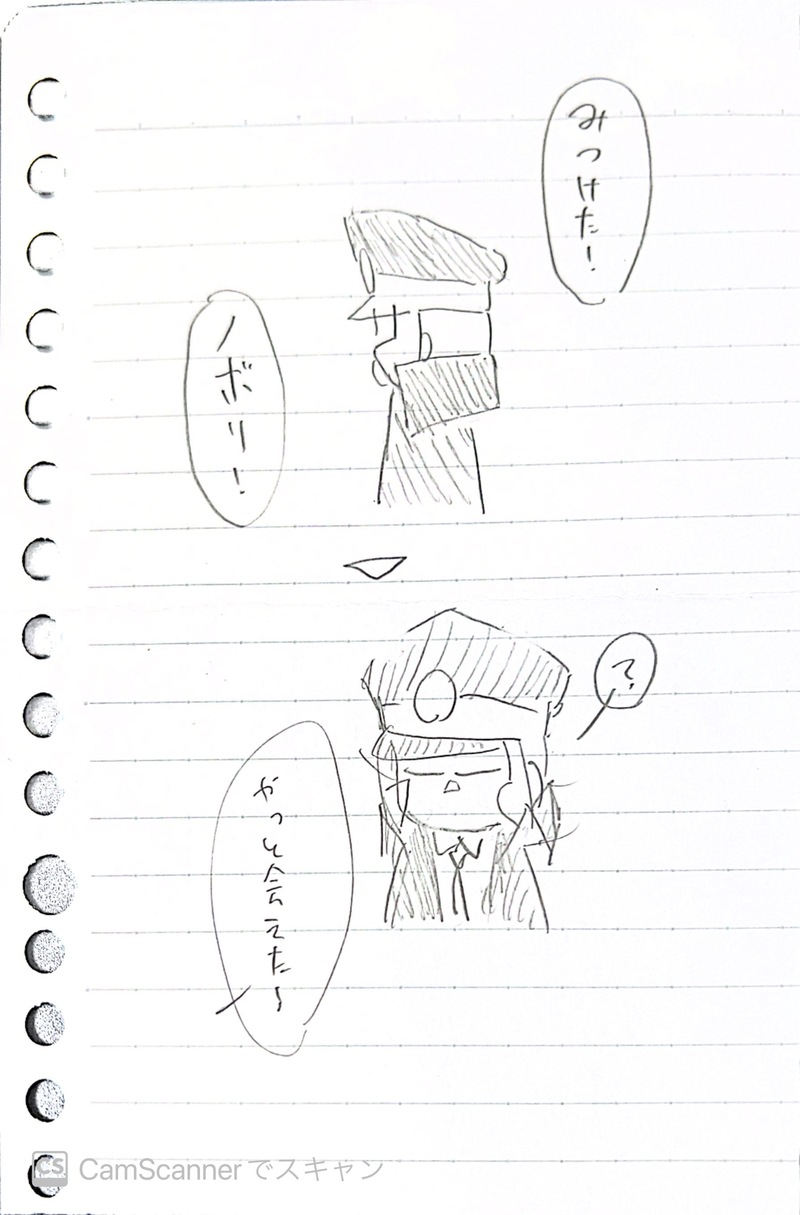 みつけた!
ノボリ!
?
やっと会えた~
CS CamScanner でスキャン